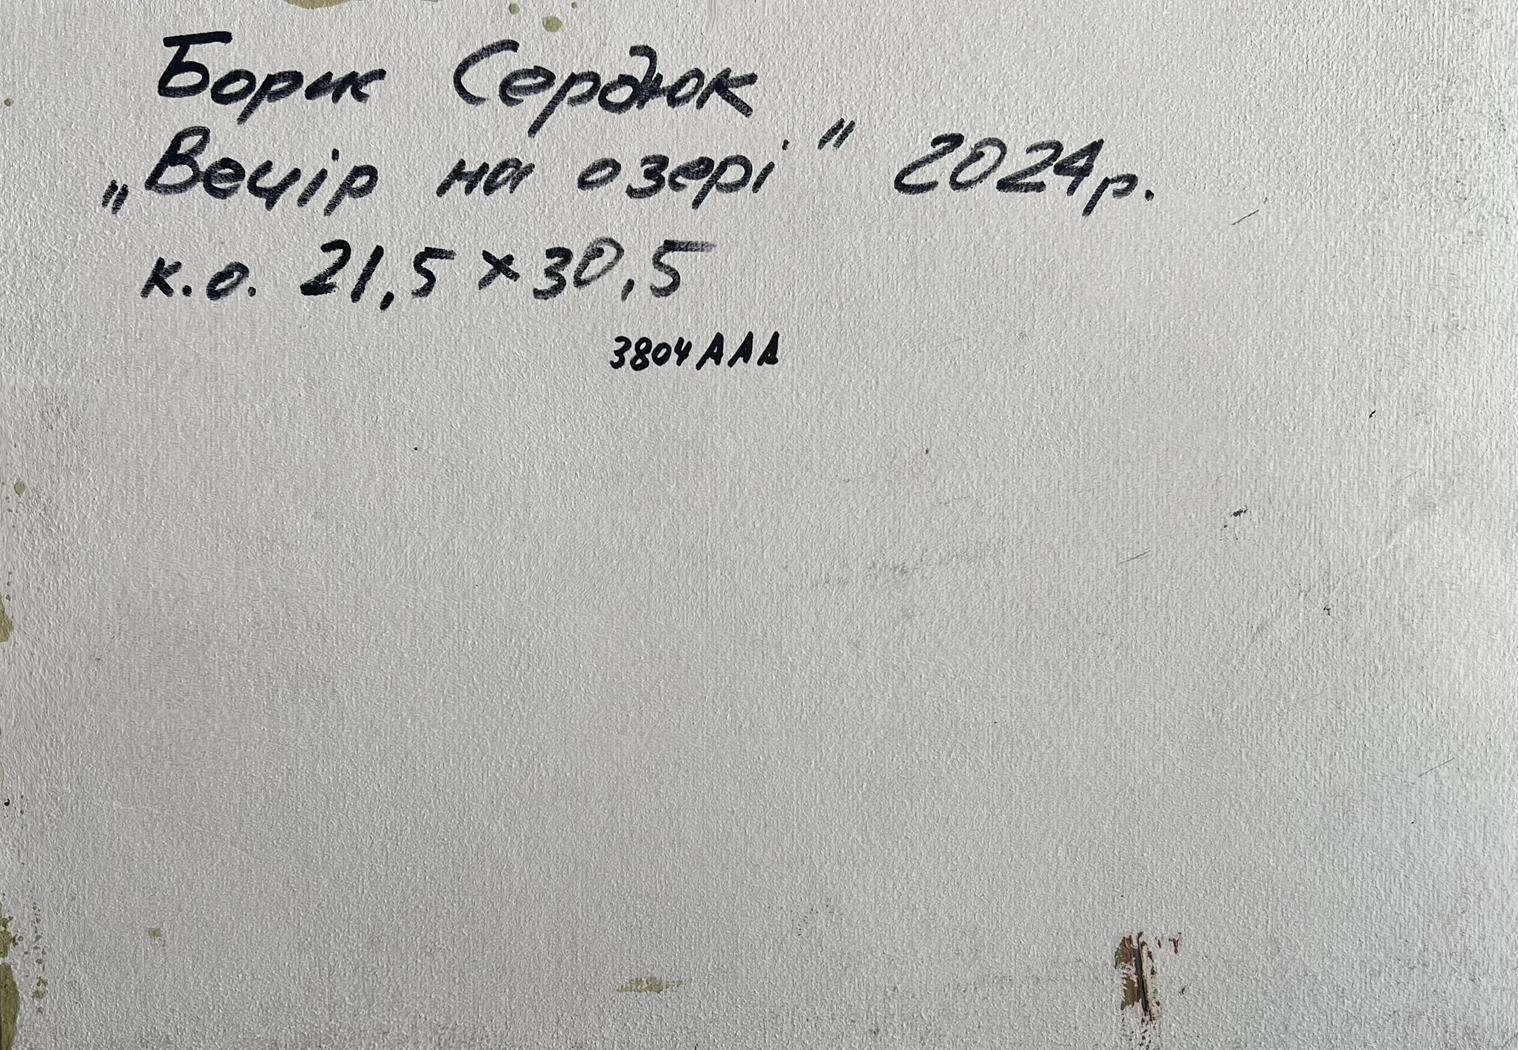 Борис Сердюк
„Вечір на озері" 2024р.
к.о. 21,5 × 30,5
3804 ААА